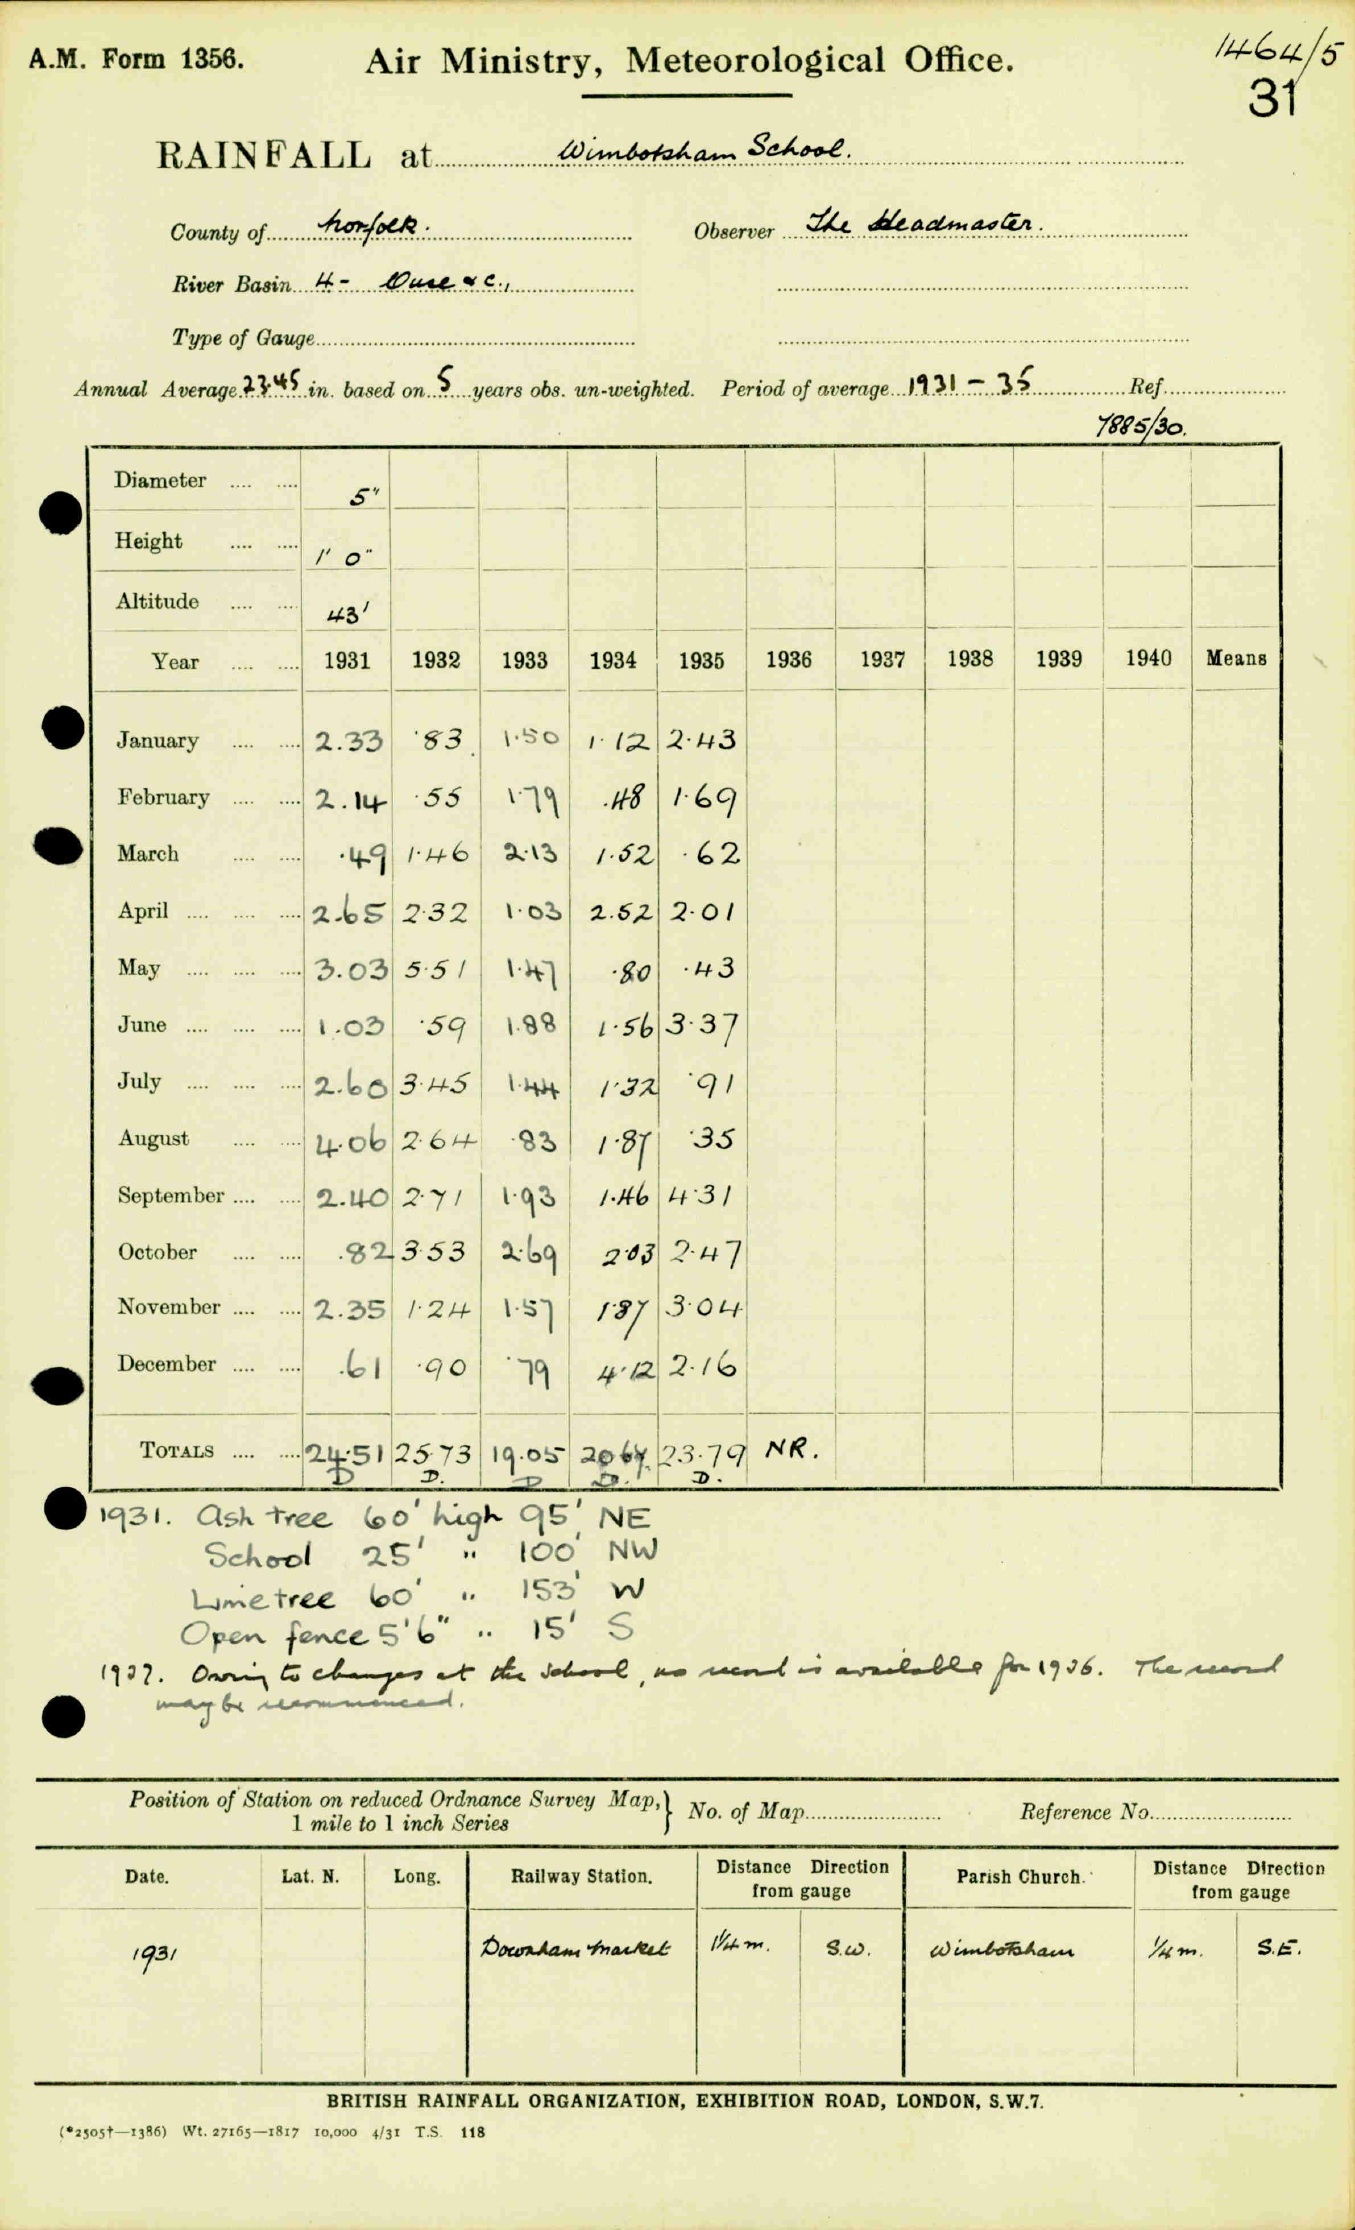 A.M. Form 1356.
Air Ministry, Meteorological Office.
1464/5
31
RAINFALL at Wimbotsham School.
County of Norfolk. Observer The Headmaster.
River Basin 4- Ouse & C.,
Type of Gauge
Annual Average 23.45 in. based on 5 years obs. un-weighted. Period of average 1931 - 35 Ref.
1885/30.
Diameter 5"
Height 1' 0"
Altitude 43'
Year 1931 1932 1933 1934 1935 1936 1937 1938 1939 1940 Means
January 2.33 .83 1.50 1.12 2.43
February 2.14 .55 1.79 .48 1.69
March .49 1.46 2.13 1.52 .62
April 2.65 2.32 1.03 2.52 2.01
May 3.03 5.51 1.47 .80 .43
June 1.03 .59 1.88 1.56 3.37
July 2.60 3.45 1.44 1.32 .91
August 4.06 2.64 .83 1.87 .35
September 2.40 2.71 1.93 1.46 4.31
October .82 3.53 2.69 2.03 2.47
November 2.35 1.24 1.57 1.87 3.04
December .61 .90 .79 4.12 2.16
TOTALS 24.51 25.73 19.05 20.67 23.79 NR.
D D. D D. D.
1931. Ash tree 60' high 95' NE
School 25' " 100' NW
Lime tree 60' " 153' W
Open fence 5'6" " 15' S
1937. Owing to changes at the school, no record is available for 1936. The record
may be recommenced.
Position of Station on reduced Ordnance Survey Map, } No. of Map Reference No.
1 mile to 1 inch Series
Date. Lat. N. Long. Railway Station. Distance Direction from gauge Parish Church. Distance Direction from gauge
1931 Downham Market 1¼ m. S.W. Wimbotsham ¼ m. S.E.
BRITISH RAINFALL ORGANIZATION, EXHIBITION ROAD, LONDON, S.W.7.
(*2505†—1386) Wt. 27165—1817 10,000 4/31 T.S. 118